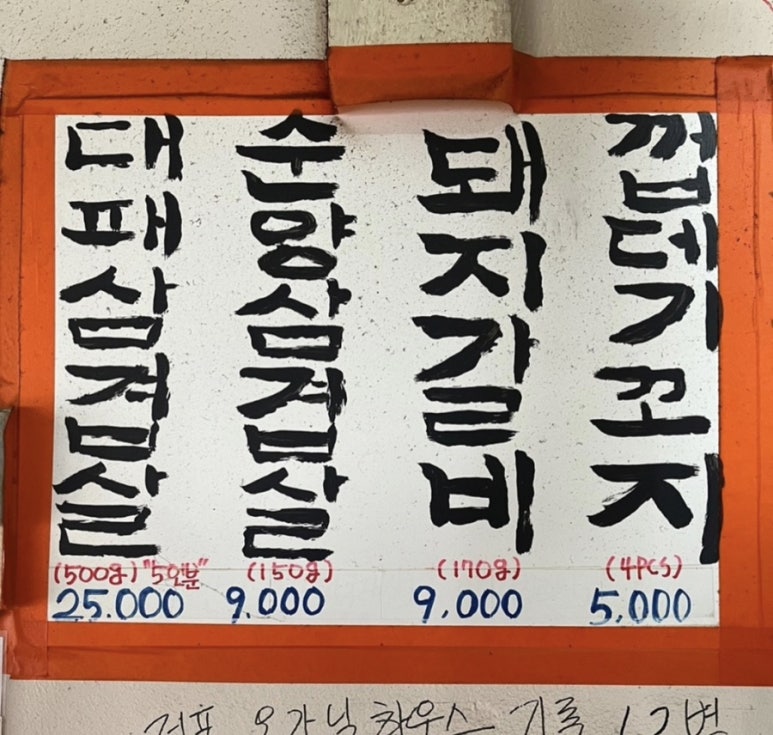 대패삼겹살
(500g) "5인분"
25.000
순양삼겹살
(150g)
9.000
돼지갈비
(170g)
9,000
껍데기꼬지
(4PCS)
5,000
하우스